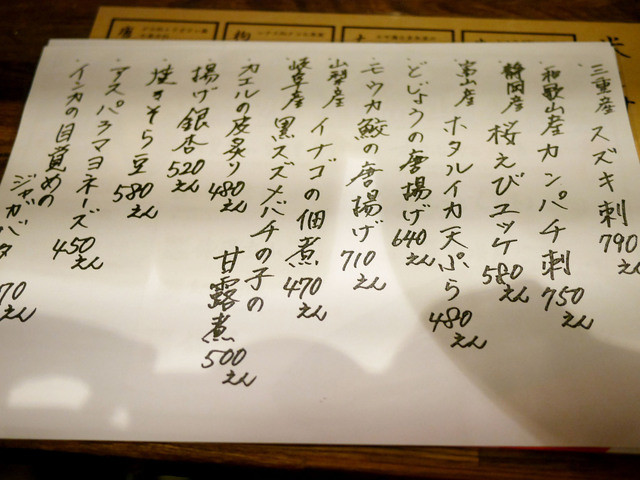 三重産 スズキ刺 790えん
和歌山産 カンパチ刺 750えん
静岡産 桜えびユッケ 580えん
富山産 ホタルイカ天ぷら 480えん
どじょうの唐揚げ 640えん
モウカ鮫の唐揚げ 710えん
山梨産 イナゴの佃煮 470えん
岐阜産 黒スズメバチの子の
甘露煮 500えん
カエルの皮炙り 480えん
揚げ銀杏 520えん
焼きそら豆 580えん
アスパラマヨネーズ 450えん
インカの目覚めの
ジャガバタ 70えん